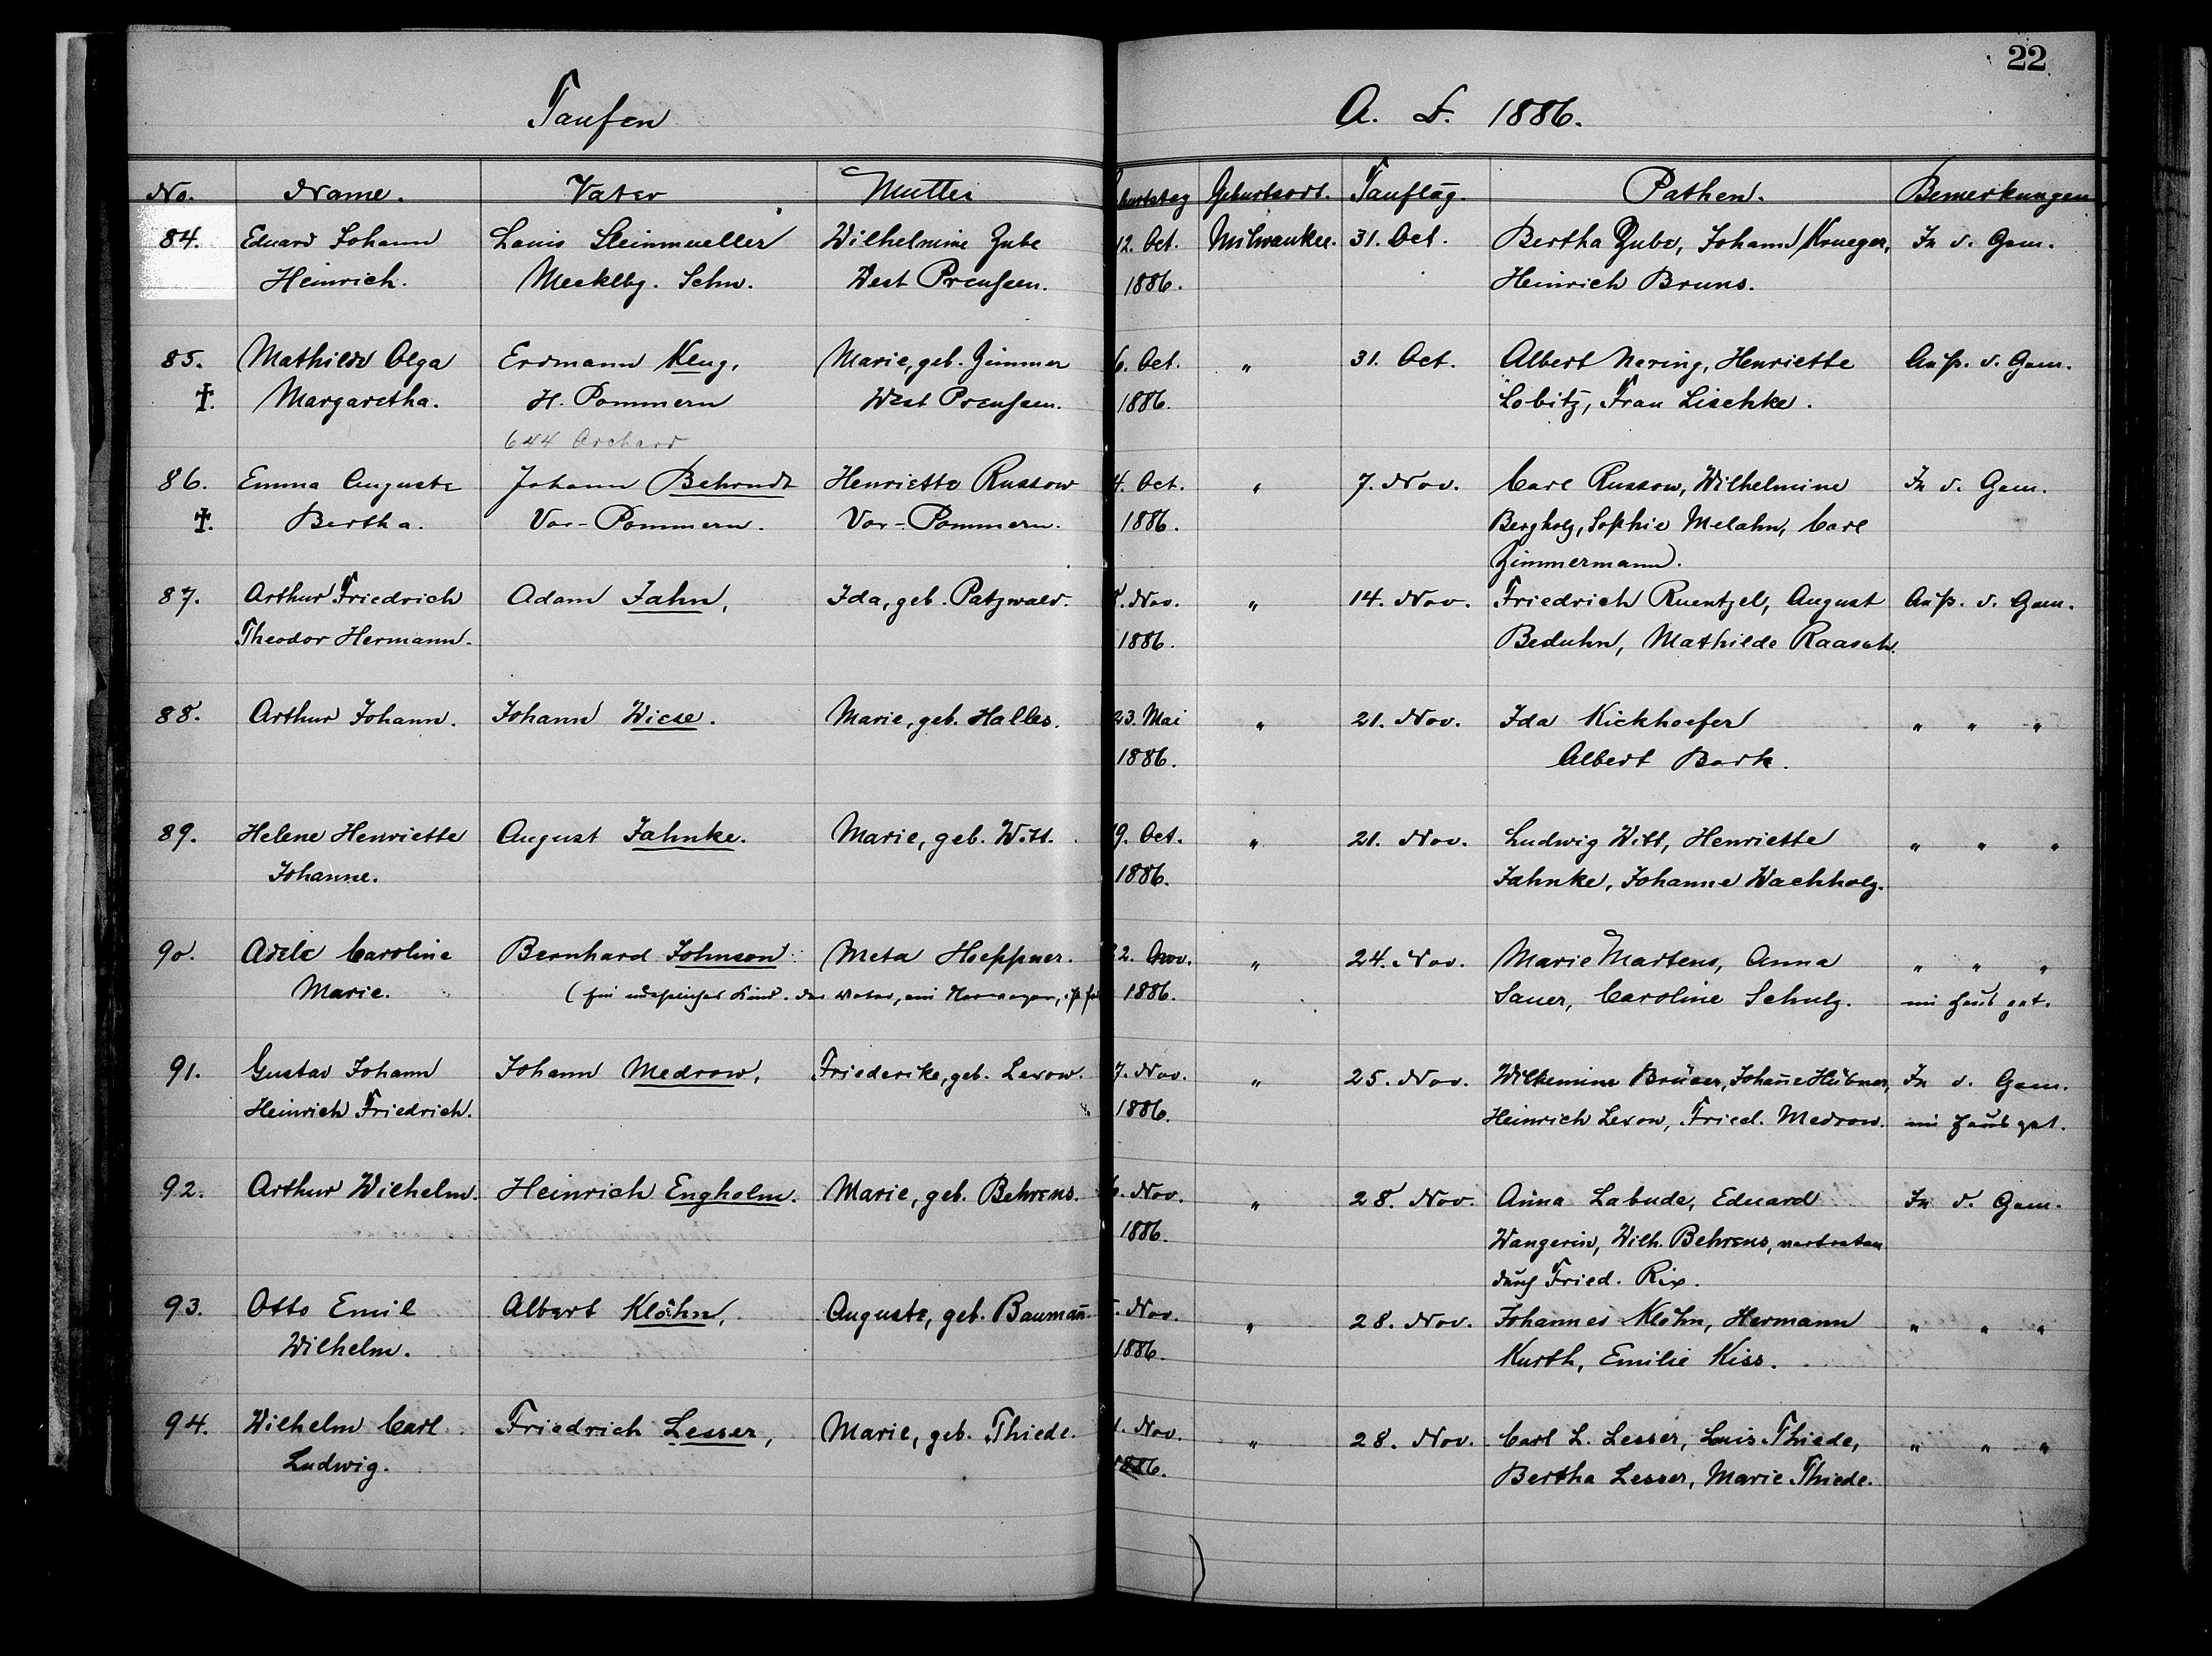 22
Taufen A. D. 1886.
No. Name. Vater Mutter Geburtsort. Tauftag. Pathen. Bemerkungen
84. Eduard Johann Louis Steinmueller Wilhelmine Zube 12. Oct. Milwaukee. 31. Oct. Bertha Zube, Johann Krueger, In d. Gem.
Heinrich. Mecklbg. Schw. West Preußen. 1886. Heinrich Bruns.
85. Mathilde Olga Erdmann Klug, Marie, geb. Zimmer 6. Oct. " 31. Oct. Albert Nering, Henriette Auß. d. Gem.
†. Margaretha. H. Pommern West Preußen. 1886. Lobitz, Frau Lischke.
644 Orchard
86. Emma Auguste Johann Behrndt Henriette Russow 4. Oct. " 7. Nov. Carl Russow, Wilhelmine In d. Gem.
†. Bertha. Vor-Pommern. Vor-Pommern. 1886. Bergholz, Sophie Melahn, Carl
Zimmermann.
87. Arthur Friedrich Adam Jahn, Ida, geb. Patzwald. Nov. " 14. Nov. Friedrich Ruentzel, August Auß. d. Gem.
Theodor Hermann. 1886. Beduhn, Mathilde Raasch.
88. Arthur Johann. Johann Wiese. Marie, geb. Halles. 23. Mai " 21. Nov. Ida Kickhoefer " " "
1886. Albert Bark.
89. Helene Henriette August Jahnke. Marie, geb. Witt. 9. Oct. " 21. Nov. Ludwig Witt, Henriette " " "
Johanne. 1886. Jahnke, Johanne Wachholz.
90. Adele Caroline Bernhard Johnson Meta Hoeppner. 2. Nov. " 24. Nov. Marie Martens, Anna " " "
Marie. (Ein uneheliches Kind. der Vater, ein Norweger, ist 1886. Sauer, Caroline Schulz. im Haus get.
91. Gustav Johann Johann Medrow, Friederike, geb. Lexow. 7. Nov. " 25. Nov. Wilhemine Brüser, Johañe Hübner, In d. Gem.
Heinrich Friedrich. 1886. Heinrich Lexow, Fried. Medrow. im Haus get.
92. Arthur Wilhelm. Heinrich Engholm. Marie, geb. Behrens. 6. Nov. " 28. Nov. Anna Labude, Eduard In d. Gem.
1886. Wangerin, Wilh. Behrens, vertreten
durch Fried. Rix.
93. Otto Emil Albert Klöhn, Auguste, geb. Baumañ. Nov. " 28. Nov. Johannes Klöhn, Hermann " " "
Wilhelm. 1886. Kurth, Emilie Kiss.
94. Wilhelm Carl Friedrich Lesser, Marie, geb. Thiede. 1. Nov. " 28. Nov. Carl L. Lesser, Luis Thiede, " " "
Ludwig. 1886. Bertha Lesser, Marie Thiede.